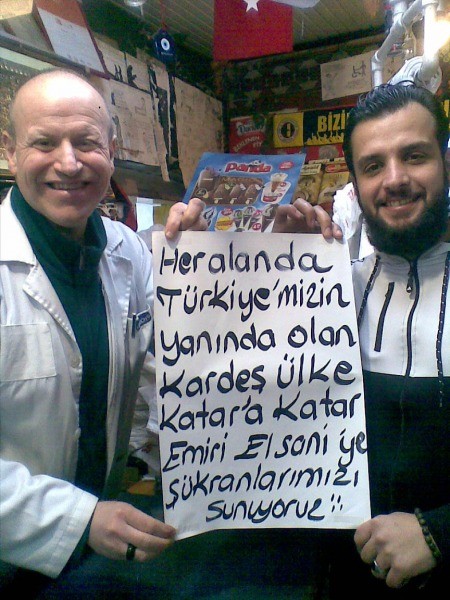 Panda
BİZİ
Her alanda
Türkiye'mizin
yanında olan
Kardeş Ülke
Katar'a Katar
Emiri El sani'ye
şükranlarımızı
sunuyoruz!!